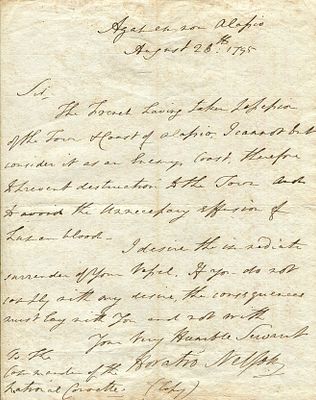 Agamemnon Alassio
August 26th. 1795
Sir
The French having taken Possession
of the Town & Coast of Alassio, I cannot but
consider it as an Enemy's Coast, therefore
to prevent destruction to the Town and
to avoid the unnecessary effusion of
human blood
I desire the immediate
surrender of your Vessel. If you do not
comply with my desire, the consequences
must lay with You and not with
Your Very Humble Servant
Horatio Nelson
To the
Commander of the
National Corvette (Copy)